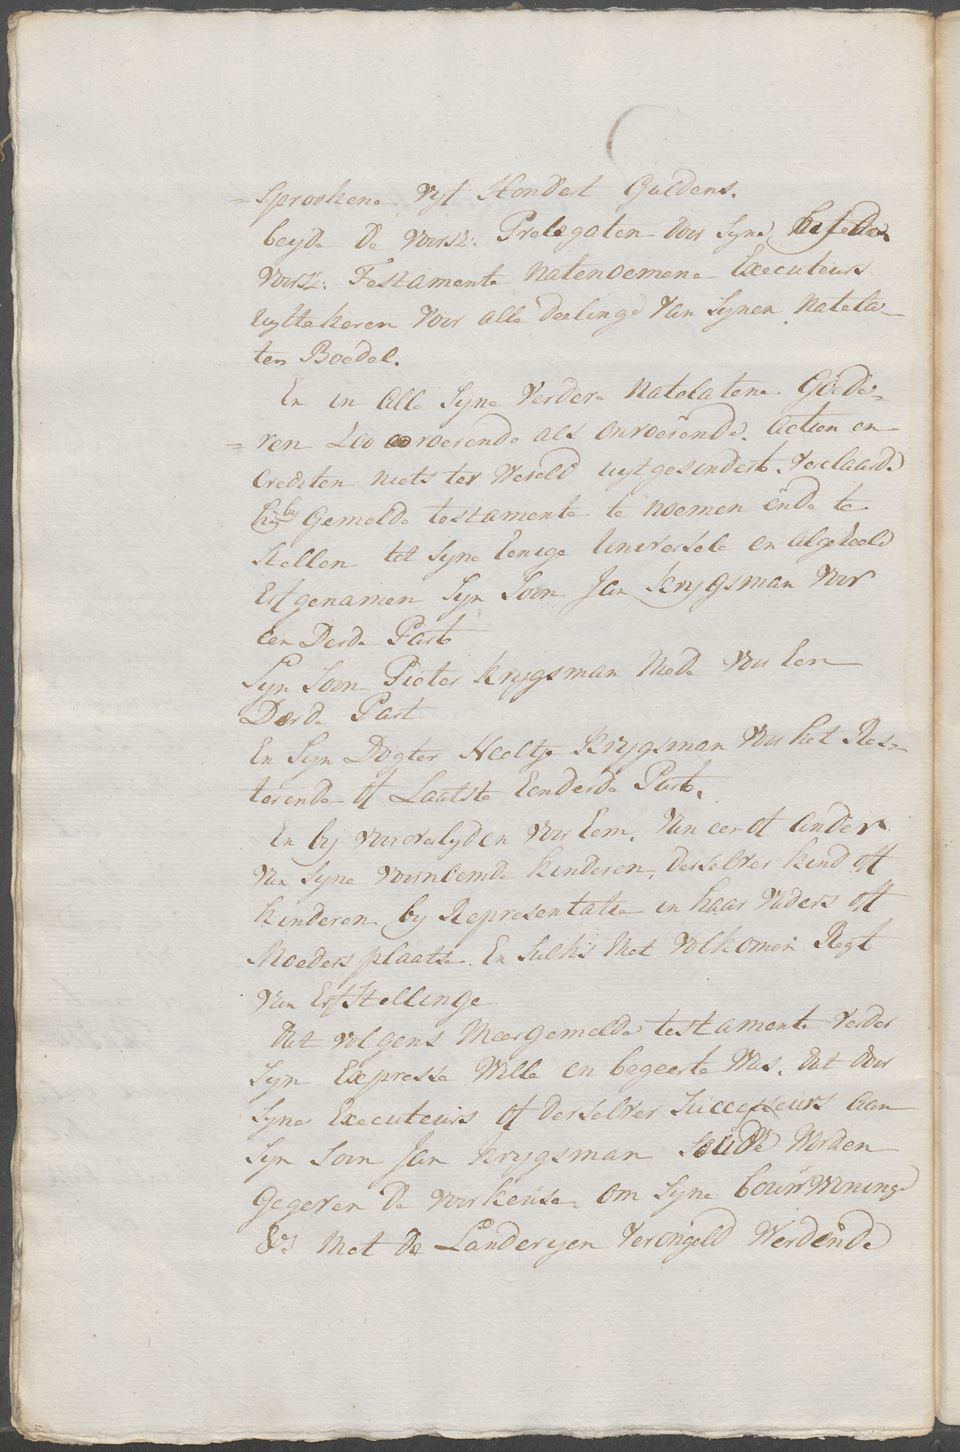 = sprookene Vyf Hondert Guldens.
beyde de voorsz: Prelegaten door syne
voorsz: Testamente natenoemene Executeurs
uyttekeren voor alle deelinge van synen natela-
ten Boedel.
En in alle syne verdere natelatene Goede-
= ren zoo roerende als onroerende. Actien en
Crediten niets ter Wereld uytgesondert, verclaarde
hy by Gemelde testamente te noemen ende te
stellen tot syne Eenige Universele en algeheele
Erfgenamen Syn Soon Jan Krygsman voor
een Derde Part
Syn Soon Pieter Krygsman mede voor Een
Derde Part
En Syn Dogter Neeltje Krygsman voor het Res-
terende of Laatste Eenderde Part.
En by vooroverlyden voor hem, van een of ander
van syne voornoemde kinderen, derselver kind off
kinderen by Representatie in haar Vaders off
Moeders plaatse. En Sulks Met volkomen Regt
van Erfstellinge
Dat volgens Meergemelde testamente verder
Syn Expresse Wille en begeerte Was, dat door
Syne Executeurs of derselver Successeurs aan
Syn Soon Jan Krygsman soude Worden
gegeven de voorkeuse om Syne bouwwoninge
&a Met de Landeryen Verongeld Werdende